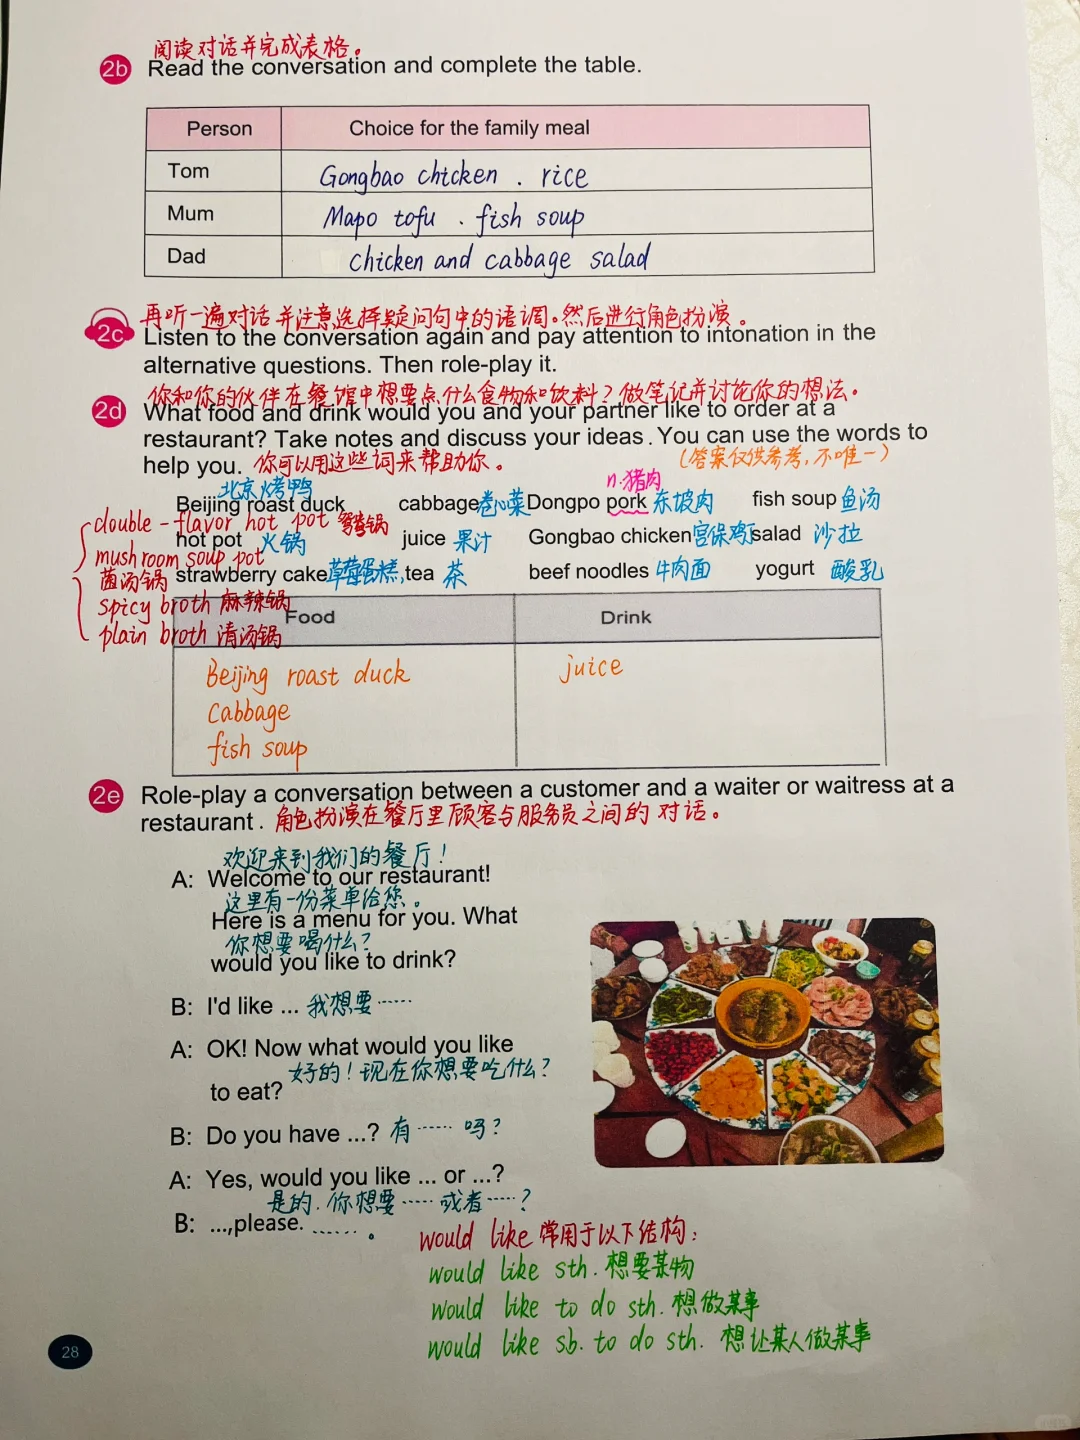 阅读对话并完成表格。
2b Read the conversation and complete the table.
Person Choice for the family meal
Tom Gongbao chicken . rice
Mum Mapo tofu . fish soup
Dad chicken and cabbage salad
再听一遍对话并注意选择疑问句中的语调。然后进行角色扮演。
2c Listen to the conversation again and pay attention to intonation in the
alternative questions. Then role-play it.
你和你的伙伴在餐馆中想要点什么食物和饮料？做笔记并讨论你的想法。
2d What food and drink would you and your partner like to order at a
restaurant? Take notes and discuss your ideas. You can use the words to
help you. 你可以用这些词来帮助你。 (答案仅供参考,不唯一)
北京烤鸭 n.猪肉
Beijing roast duck cabbage 卷心菜 Dongpo pork 东坡肉 fish soup 鱼汤
double-flavor hot pot 鸳鸯锅
hot pot 火锅 juice 果汁 Gongbao chicken 宫保鸡丁 salad 沙拉
mushroom soup pot
菌汤锅 strawberry cake 草莓蛋糕, tea 茶 beef noodles 牛肉面 yogurt 酸乳
spicy broth 麻辣锅
Food Drink
plain broth 清汤锅
Beijing roast duck juice
Cabbage
fish soup
2e Role-play a conversation between a customer and a waiter or waitress at a
restaurant. 角色扮演在餐厅里顾客与服务员之间的对话。
欢迎来到我们的餐厅！
A: Welcome to our restaurant!
这里有一份菜单给您。
Here is a menu for you. What
你想要喝什么？
would you like to drink?
B: I'd like ... 我想要……
A: OK! Now what would you like
好的！现在你想要吃什么？
to eat?
B: Do you have ...? 有……吗？
A: Yes, would you like ... or ...?
是的.你想要……或者……？
B: ...,please. ……。
would like 常用于以下结构：
would like sth. 想要某物
would like to do sth. 想做某事
would like sb. to do sth. 想让某人做某事
28